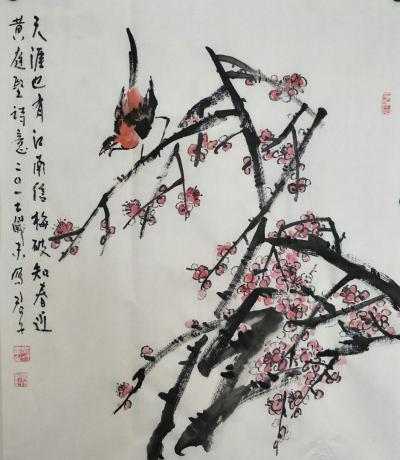 天涯也有江南信梅破知春近
黄庭坚詩意二〇一七